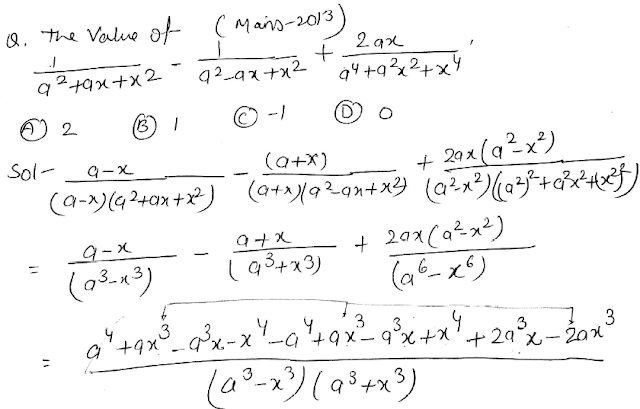 Q. The value of (Mains-2013)
1/(a²+ax+x²) - 1/(a²-ax+x²) + 2ax/(a⁴+a²x²+x⁴),
(A) 2 (B) 1 (C) -1 (D) 0
Sol- (a-x)/((a-x)(a²+ax+x²)) - (a+x)/((a+x)(a²-ax+x²)) + 2ax(a²-x²)/((a²-x²)((a²)²+a²x²+(x²)²))
= (a-x)/(a³-x³) - (a+x)/(a³+x³) + 2ax(a²-x²)/(a⁶-x⁶)
= (a⁴+ax³-a³x-x⁴-a⁴+ax³-a³x+x⁴+2a³x-2ax³)/((a³-x³)(a³+x³))